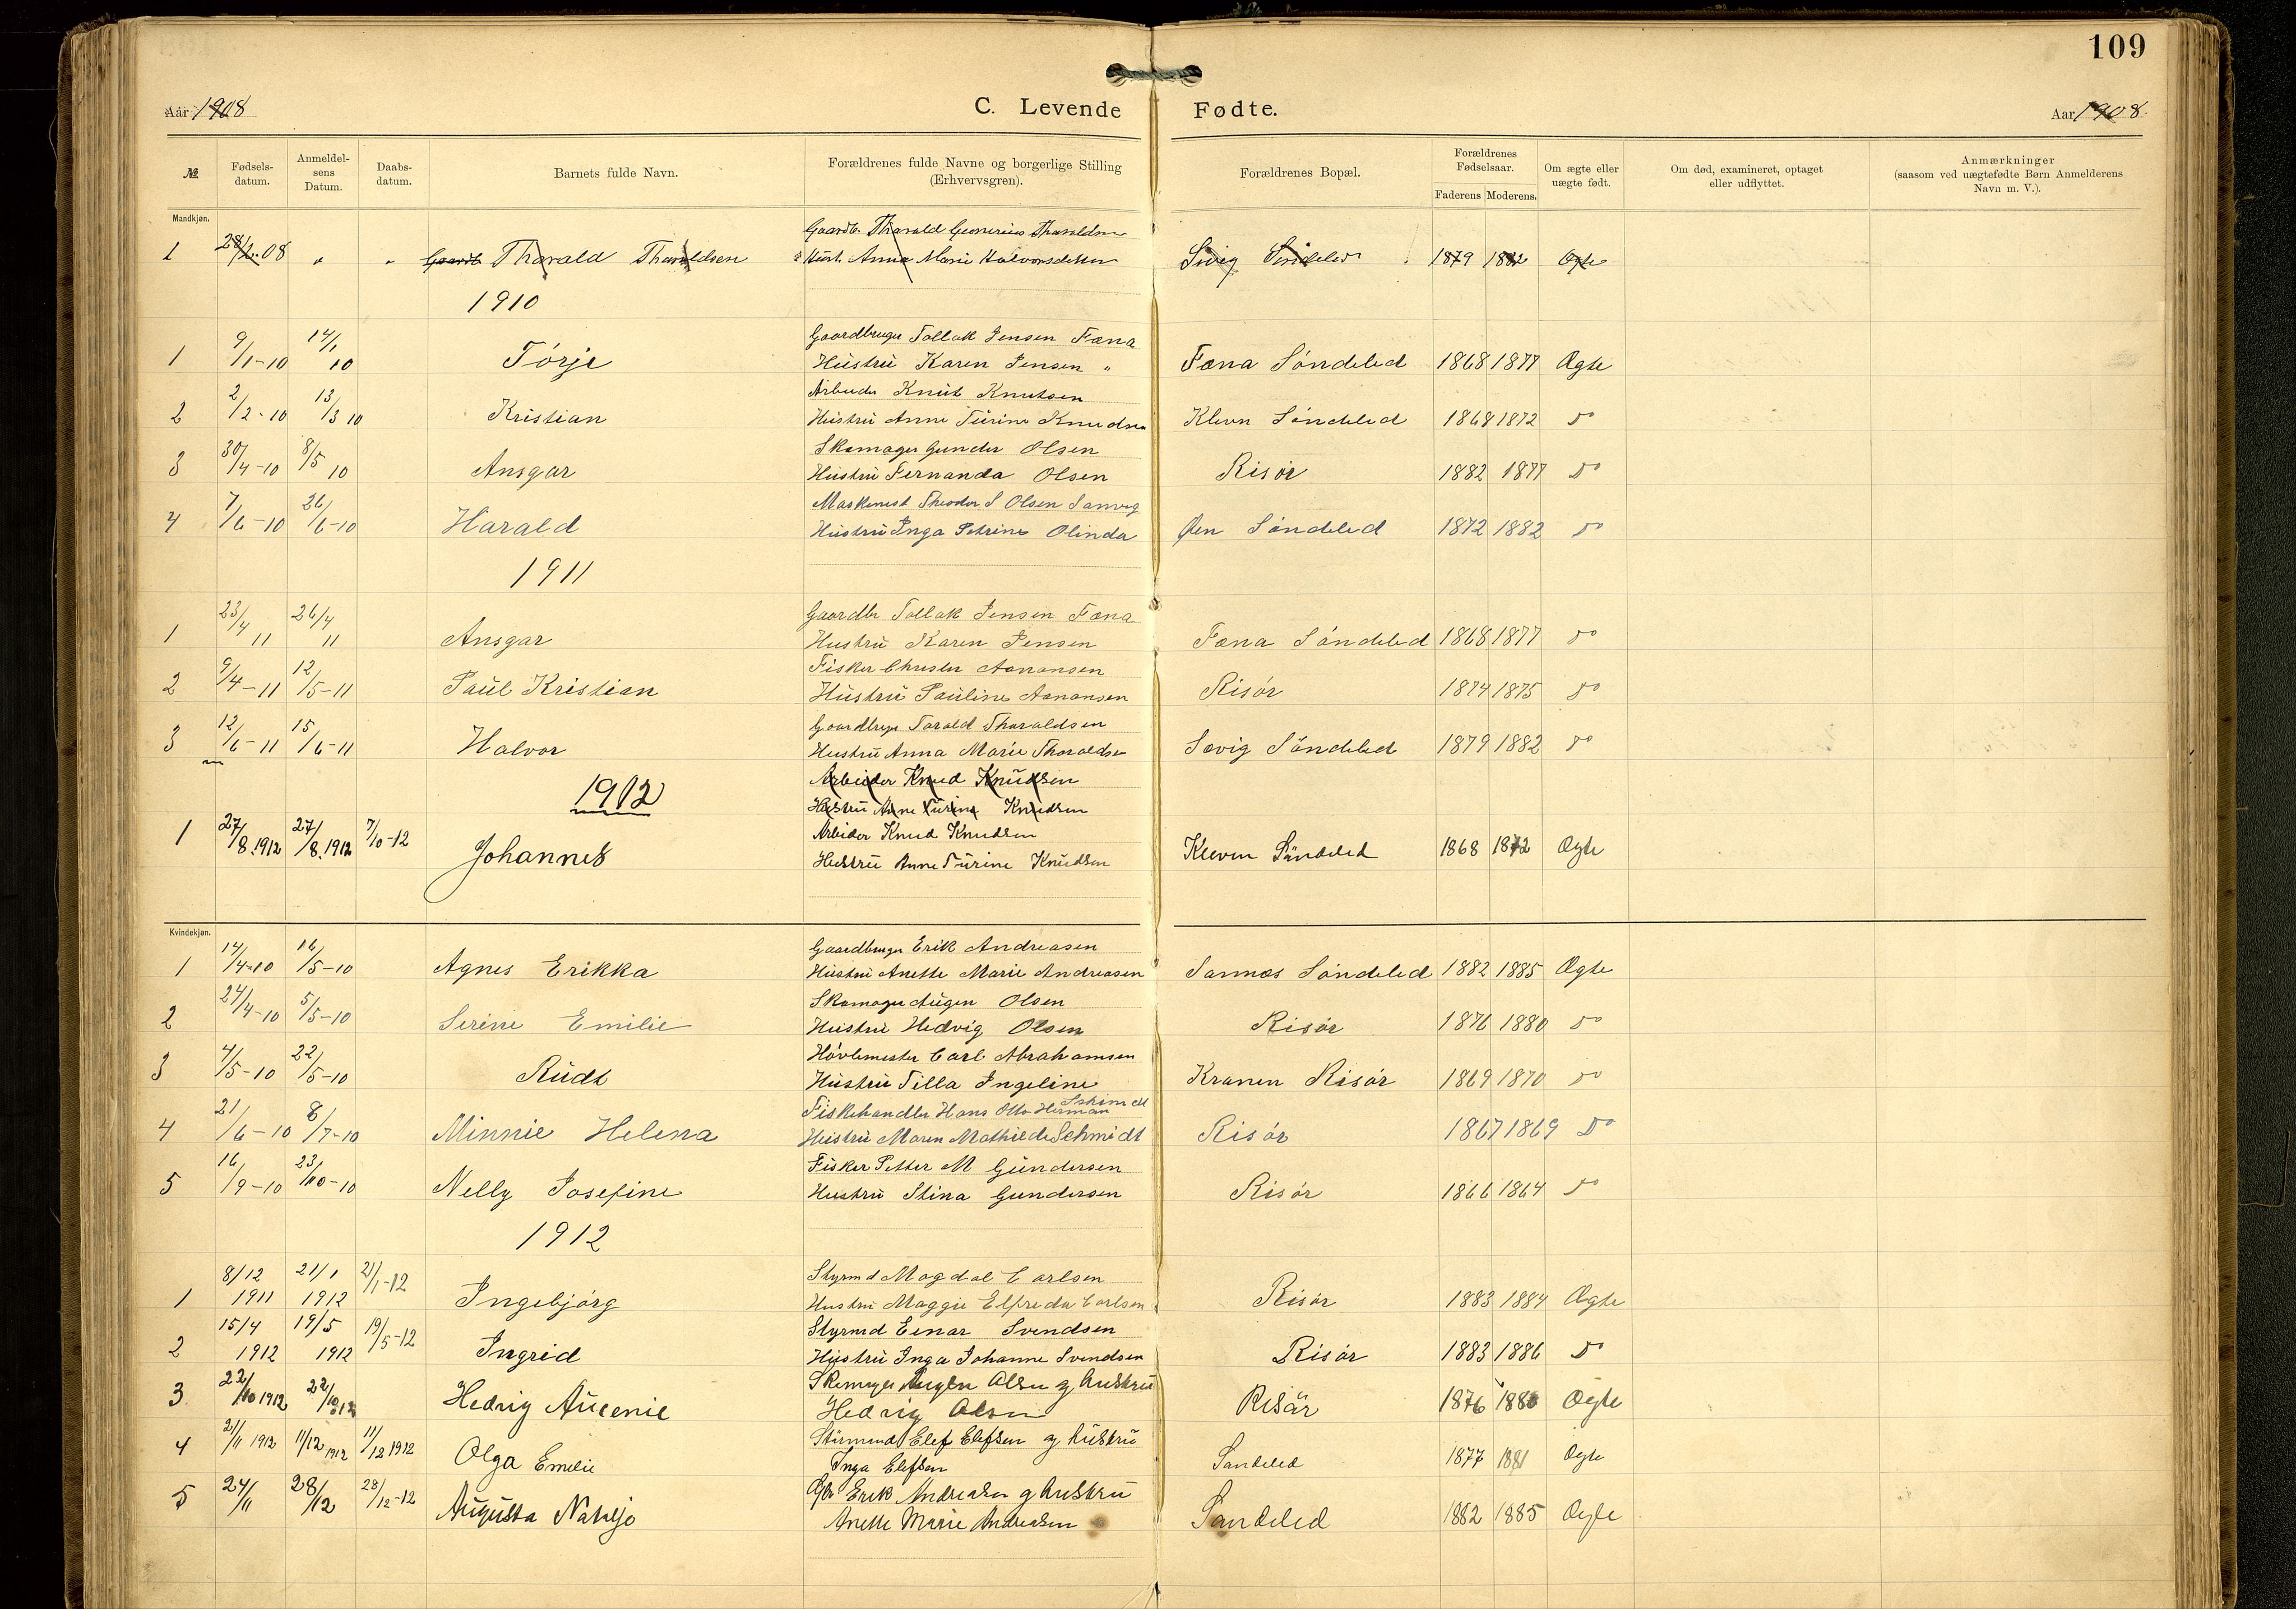 109
Aar 1908 C. Levende Fødte. Aar 1908.
№ Fødsels-datum. Anmeldel-sens Datum. Daabs-datum. Barnets fulde Navn. Forældrenes fulde Navne og borgerlige Stilling (Erhvervsgren). Forældrenes Bopæl. Forældrenes Fødselsaar. Faderens Moderens. Om ægte eller uægte født. Om død, examineret, optaget eller udflyttet. Anmærkninger (saasom ved uægtefødte Børn Anmelderens Navn m. V.).
Mandkjøn.
Gaardb. Tharald Tharaldsen
1 28/2-08 " " Gaardb Tharald Tharaldsen Hust. Anna Marie Halvorsdatter Søndeled 1879 1882 Ægte
1910
Gaardbruger Tollak Jensen Fæna
1 9/1-10 14/1 10 Tørje Hustru Karen Jensen " Fæna Søndeled 1868 1877 Ægte
Arbeider Knut Knutsen
2 2/2-10 13/3 10 Kristian Hustru Anne Turine Knudsen Kleven Søndeled 1868 1872 do
Skomager Gunder Olsen
3 30/4-10 8/5 10 Ansgar Hustru Fernanda Olsen Risør 1882 1877 do
Maskenist Theodor S Olsen Sanvig
4 7/6-10 26/6-10 Harald Hustru Inga Petrine Olinda Øen Søndeled 1872 1882 do
1911
Gaardbr Tollak Jensen Fæna
1 23/4 11 26/4 11 Ansgar Hustru Karen Jensen Fæna Søndeled 1868 1877 do
Fisker Aanonsen
2 9/4-11 12/5-11 Paul Kristian Hustru Pauline Aanonsen Risør 1874 1875 do
Gaardbruger Tarald Tharaldsen
3 12/6-11 15/6-11 Halvor Hustru Anna Marie Tharaldsen Søvig Søndeled 1879 1882 do
Arbeider Knud Knudsen
1912
Hustru Anne Turine Knudsen
Arbeider Knud Knudsen
1 27/8.1912 27/8.1912 7/10-12 Johannes Hustru Anne Turine Knudsen Kleven Søndeled 1868 1872 Ægte
Kvindekjøn.
Gaardbruger Erik Andreasen
1 14/4-10 16/5-10 Agnes Erikka Hustru Anette Marie Andreasen Sannæs Søndeled 1882 1885 Ægte
Skomager Augen Olsen
2 24/4-10 5/5-10 Serine Emilie Hustru Hedvig Olsen Risør 1876 1880 do
Høvlemester Carl Abrahamsen
3 4/5-10 22/5-10 Rudt Hustru Tilla Ingeline Kranen Risør 1869 1870 do
Fiskehandler Hans Otto Herman
4 21/6-10 8/7-10 Minnie Helena Hustru Maren Mathilde Schmidt Risør 1867 1869 do
Fisker Petter M Gundersen
5 16/9-10 23/10-10 Nelly Josefine Hustru Stina Gundersen Risør 1866 1864 do
1912
Styrmd Magdal Carlsen
1 8/12 1911 21/1 1912 21/1-12 Ingebjørg Hustru Maggie Elfreda Carlsen Risør 1883 1884 Ægte
Styrmd Einar Svendsen
2 15/4 1912 19/5 1912 19/5-12 Ingrid Hustru Inga Johanne Svendsen Risør 1883 1886 do
Skomager Augen Olsen og hustru
3 22/10 1912 Hedvig Aucenie Hedvig Olsen Risør 1876 1880 Ægte
Stürmand Elef Elefsen og hustru
4 21/11 1912 11/12 1912 11/12 1912 Olga Emelie Inga Elefsen Søndeled 1877 1881 Ægte
Erik Andreasen og hustru
5 24/11 28/12 28/12-12 Augusta Natalje Anette Marie Andreasen Søndeled 1882 1885 Ægte